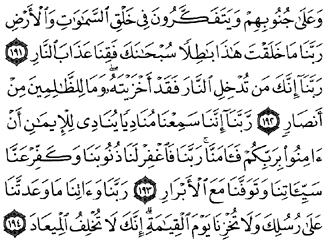 وَعَلَىٰ جُنُوبِهِمْ وَيَتَفَكَّرُونَ فِي خَلْقِ ٱلسَّمَٰوَٰتِ وَٱلْأَرْضِ
رَبَّنَا مَا خَلَقْتَ هَٰذَا بَٰطِلًا سُبْحَٰنَكَ فَقِنَا عَذَابَ ٱلنَّارِ ١٩١
رَبَّنَآ إِنَّكَ مَن تُدْخِلِ ٱلنَّارَ فَقَدْ أَخْزَيْتَهُۥ ۖ وَمَا لِلظَّٰلِمِينَ مِنْ
أَنصَارٍ ١٩٢ رَّبَّنَآ إِنَّنَا سَمِعْنَا مُنَادِيًا يُنَادِي لِلْإِيمَٰنِ أَنْ
ءَامِنُوا۟ بِرَبِّكُمْ فَـَٔامَنَّا ۚ رَبَّنَا فَٱغْفِرْ لَنَا ذُنُوبَنَا وَكَفِّرْ عَنَّا
سَيِّـَٔاتِنَا وَتَوَفَّنَا مَعَ ٱلْأَبْرَارِ ١٩٣ رَبَّنَا وَءَاتِنَا مَا وَعَدتَّنَا
عَلَىٰ رُسُلِكَ وَلَا تُخْزِنَا يَوْمَ ٱلْقِيَٰمَةِ ۗ إِنَّكَ لَا تُخْلِفُ ٱلْمِيعَادَ ١٩٤